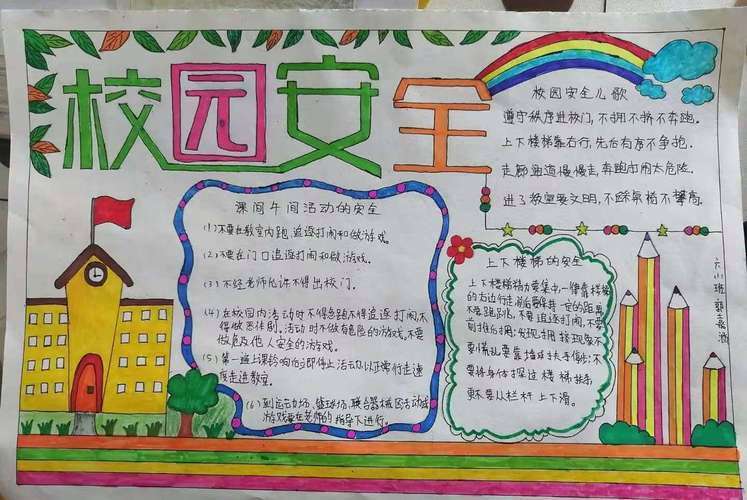 校园安全
校园安全儿歌
遵守秩序进校门，不拥不挤不奔跑。
上下楼梯靠右行，先后有序不争抢。
走廊通道慢慢走，奔跑打闹太危险。
进了教室要文明，不踩桌椅不攀高。
课间午间活动的安全
(1)不要在教室内跑，追逐打闹和做游戏。
(2)不要在门口追逐打闹和做游戏。
(3)不经老师允许不得出校门。
(4)在校园内活动时不得急跑不得追逐打闹，不
得做恶作剧。活动时不做有危的游戏。不要
做危及他人安全的游戏。
(5)第一遍上课铃响后立即停止活动以正常行走速
度走进教室。
(6)到运动场，篮球场，联合器械区活动或
游戏要在老师的指导下进行。
上下楼梯的安全
上下楼梯精力要集中一律靠楼梯
的右边行走前后要保持一定的距离
不要跑跳，不要追逐打闹，不要
前推后拥；发现拥挤现象不
要慌乱要靠墙或扶手停步；不
要将身体探过楼梯扶
更不要从栏杆上下滑。
六小班